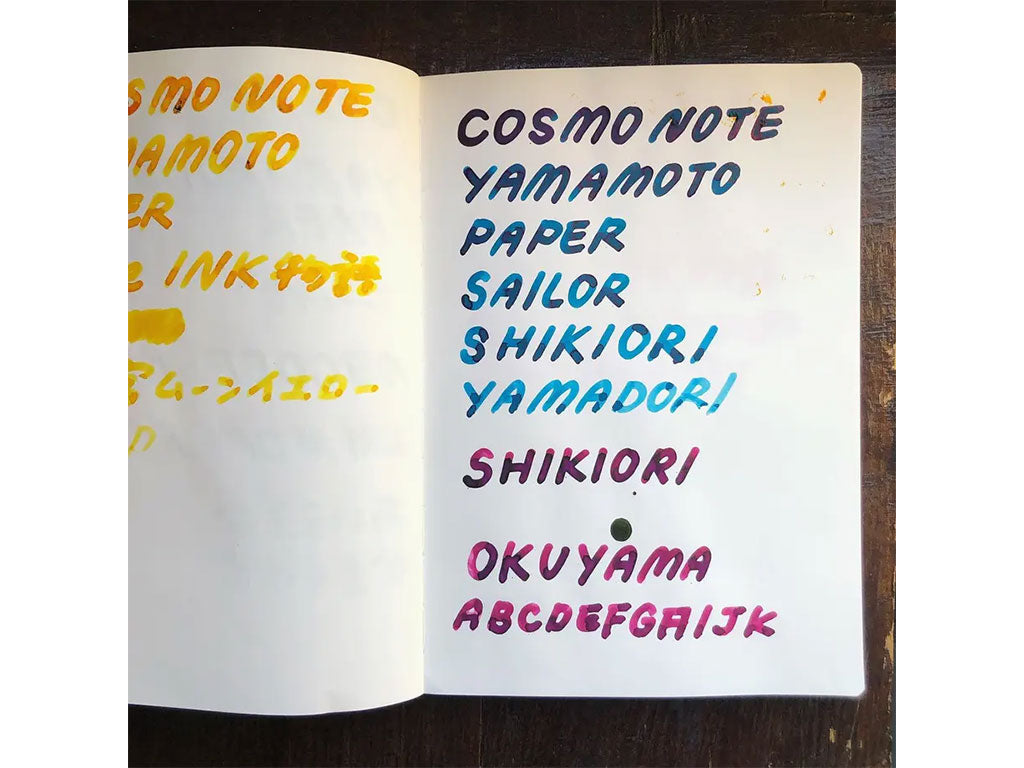 SMO NOTE
AMOTO
ER
INK 物語
ムーンイエロー
COSMO NOTE
YAMAMOTO
PAPER
SAILOR
SHIKIORI
YAMADORI
SHIKIORI
OKUYAMA
ABCDEFGHIJK